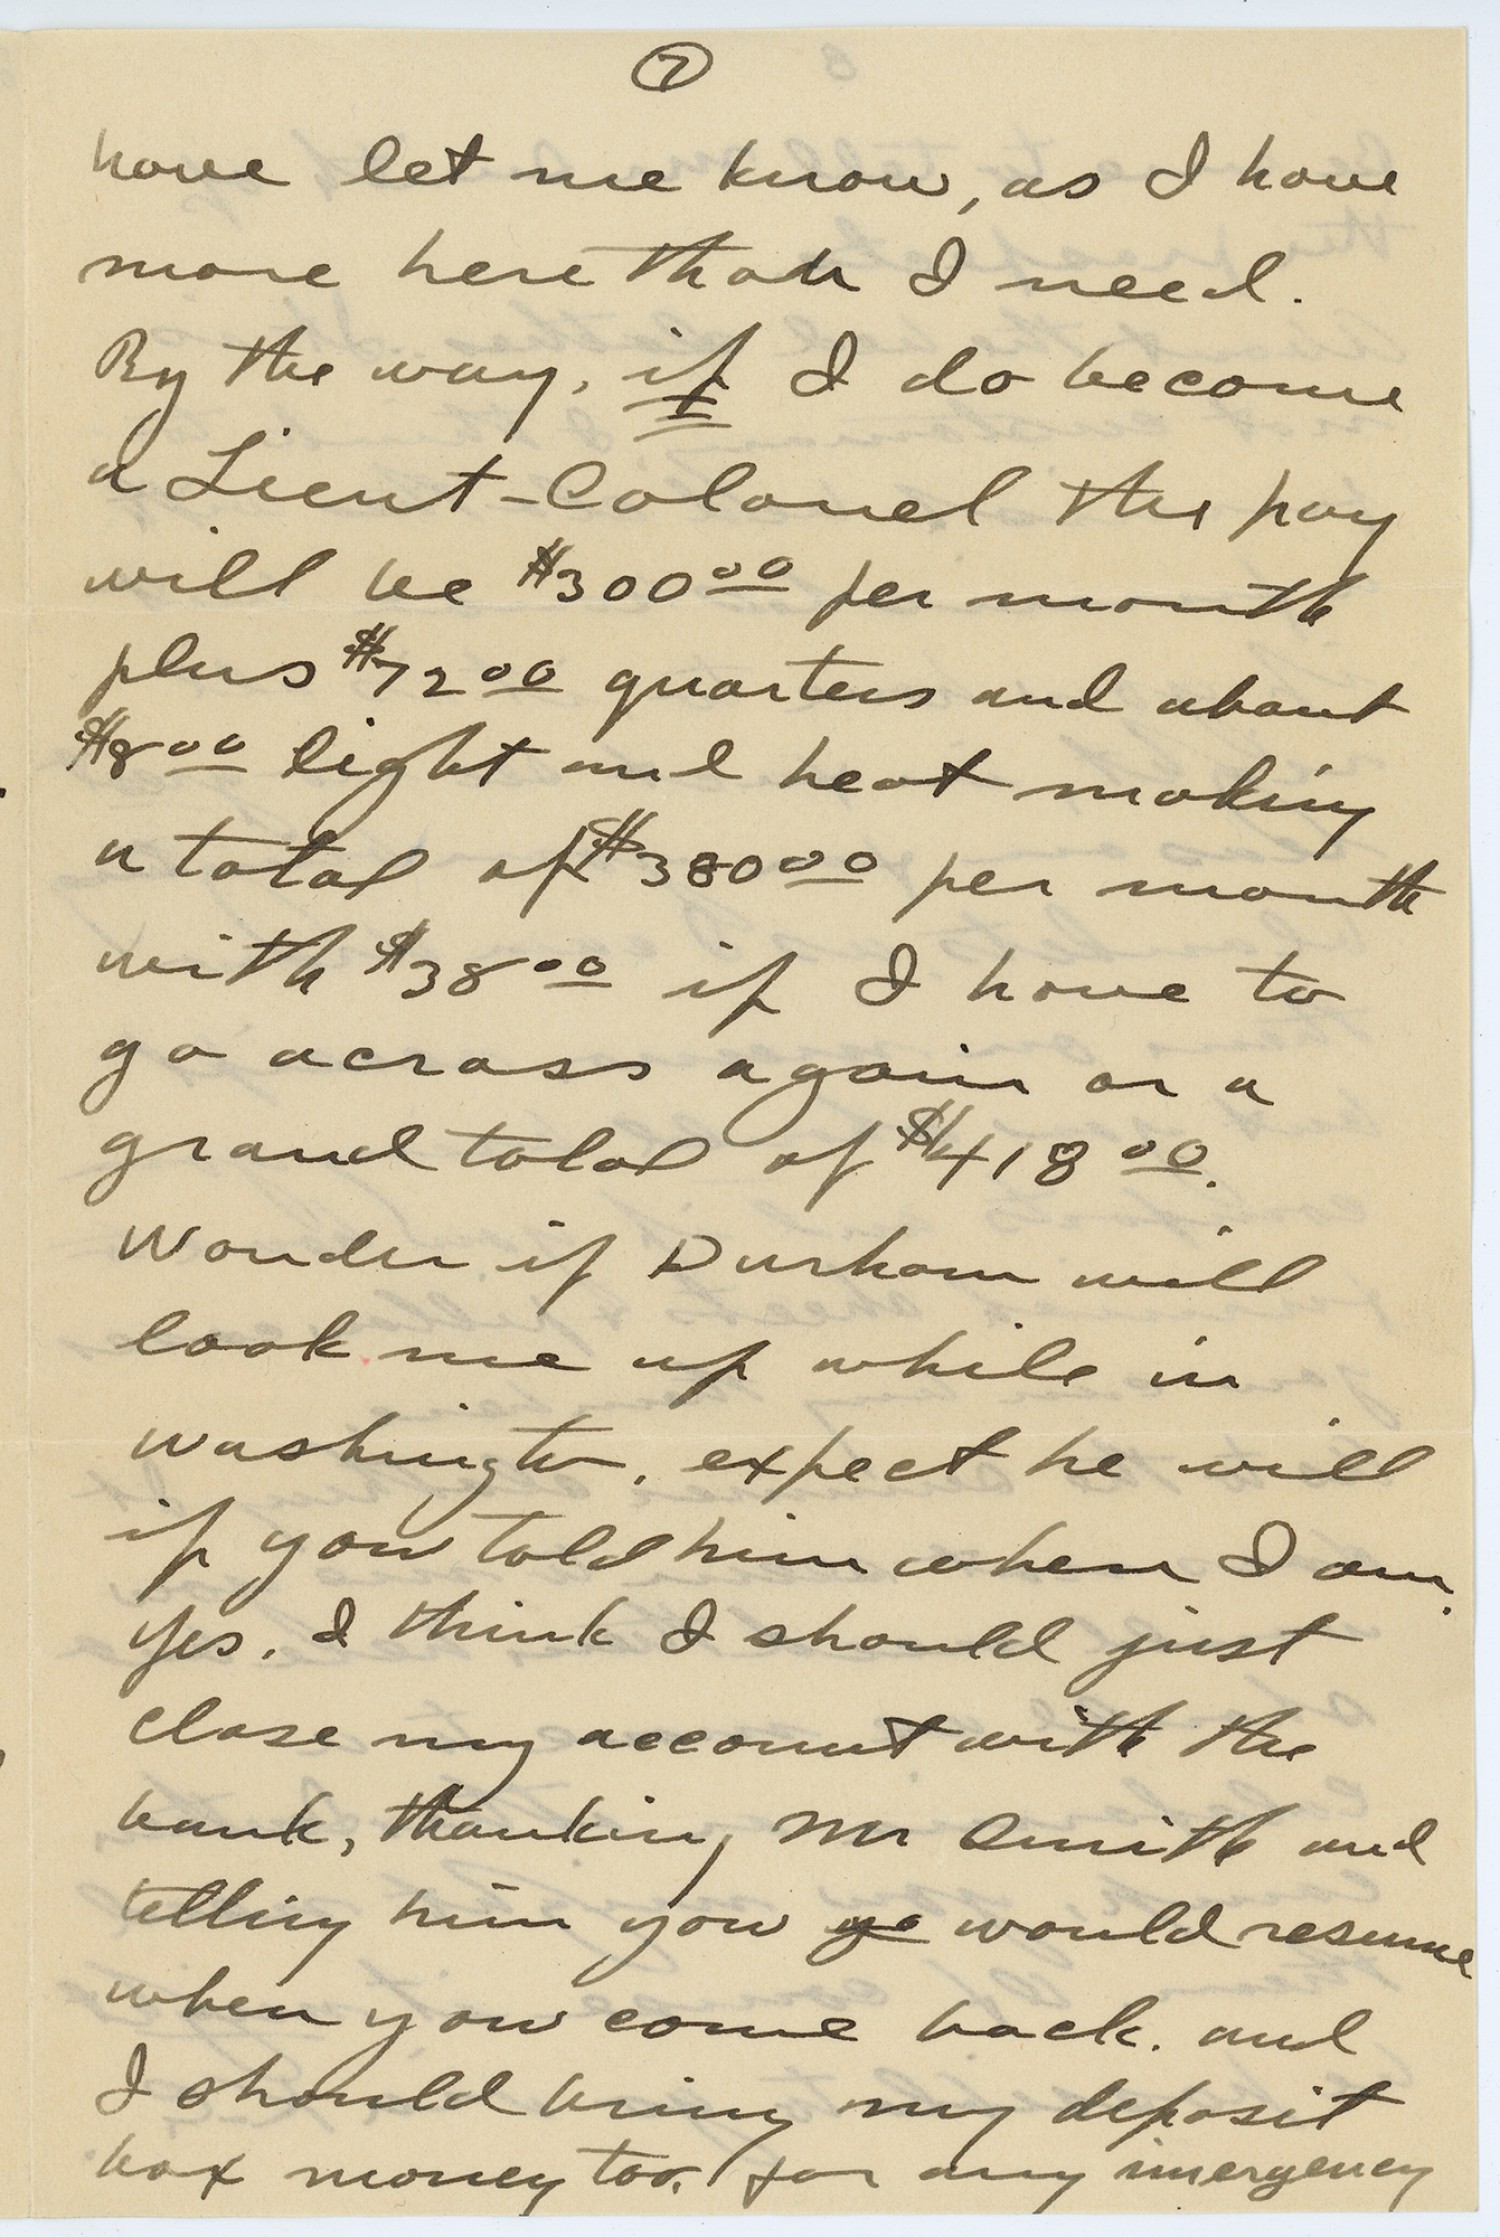 7
have let me know, as I have
more here than I need.
By the way, if I do become
a Lieut-Colonel the pay
will be $300.00 per month
plus $72.00 quarters and about
$8.00 light and heat making
a total of $380.00 per month
with $38.00 if I have to
go across again or a
grand total of $418.00.
Wonder if Durham will
look me up while in
Washington, expect he will
if you told him where I am.
Yes, I think I should just
close my account with the
bank, thanking Mr Smith and
telling him you yo would resume
when you come back. and
I should bring my deposit
box money too, for any imergency